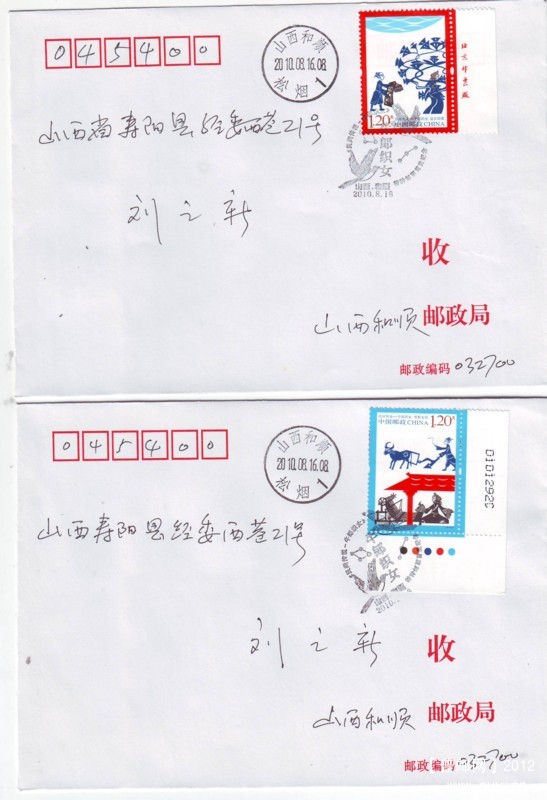 045400
山西和顺
2010.08.16.08
松烟 1
1.20元
中国邮政CHINA
北京邮票厂
山西省寿阳县经委西巷21号
牛郎织女
山西·和顺
2010.8.16
刘之新
收
山西和顺 邮政局
邮政编码 032700
045400
山西和顺
2010.08.16.08
松烟 1
中国邮政CHINA 1.20元
D1D1292C
山西寿阳县经委西巷21号
民间传说—牛郎织女
牛郎织女
刘之新
收
山西和顺 邮政局
邮政编码 032700
2012